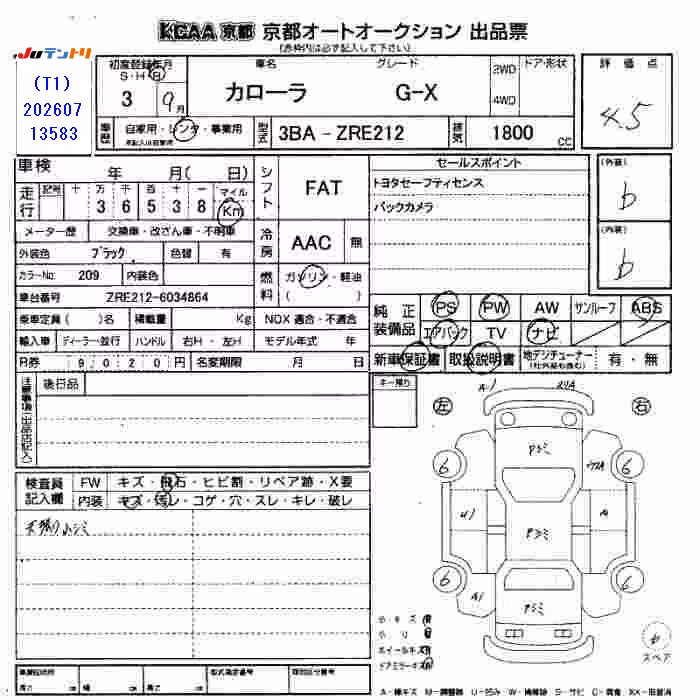 KCAA 京都 京都オートオークション 出品票
(赤枠内は必ず記入して下さい)
JUテントリ
(T1)
202607
13583
初度登録年月 車名 グレード 2WD 4WD ドア・形状 評価点
S・H・R
3 9月 カローラ G-X 4.5
車歴 自家用・レンタ・事業用 型式 3BA-ZRE212 排気 1800 cc
車検 年 月( 日) シフト FAT セールスポイント (外装)
走行 記号 十 万 千 百 十 一 マイル Km
3 6 5 3 8
トヨタセーフティセンス
バックカメラ
b
メーター歴 交換車・改ざん車・不明車 冷房 AAC 無 (内装)
外装色 ブラック 色替 有 b
カラーNo. 209 内装色 燃料 ガソリン・軽油
( )
車台番号 ZRE212-6034864
純正装備品 PS PW AW サンルーフ ABS
エアバック TV ナビ
乗車定員 ( )名 積載量 Kg NOX 適合・不適合
輸入車 ディーラー・並行 ハンドル 右H・左H モデル年式 年
新車保証書 取扱説明書 地デジチューナー 有・無
R券 9020円 名変期限 月 日
注意事項(出品店記入) 後日品
キー預り
左 右
検査員記入欄 FW キズ・飛石・ヒビ割・リペア跡・X要
内装 キズ・汚レ・コゲ・穴・スレ・キレ・破レ
天張り小シミ
A-)
Pシミ
6 6
U) A
Pシミ
6 6
A)
Pシミ
小キズ 有
小リ
ホイールキズ
ドアミラーキズ
6
スペア
長さ cm 幅 cm 高さ cm 型式指定番号 類別区分番号